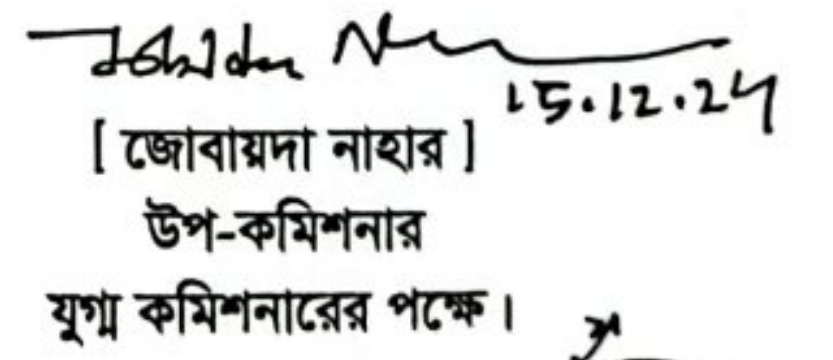 15.12.24
[ জোবায়দা নাহার ]
উপ-কমিশনার
যুগ্ম কমিশনারের পক্ষে।